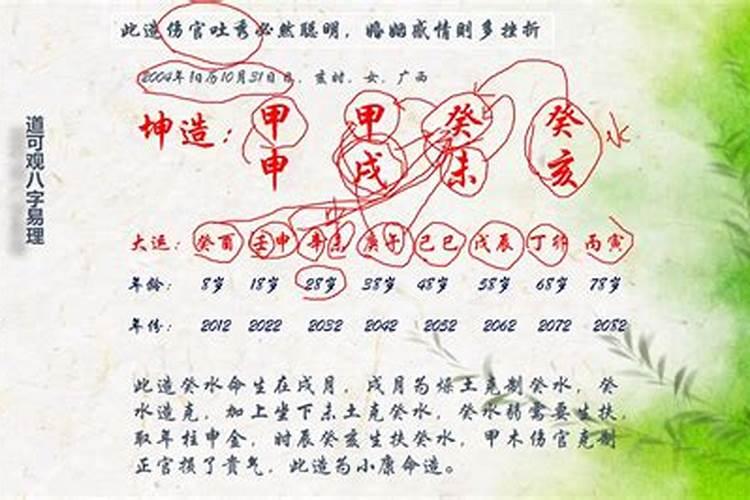 此造伤官吐秀必然聪明，婚姻感情则多挫折
2004年阳历10月31日，亥时，女，广西
坤造：甲 甲 癸 癸 水
申 戌 未 亥
道可观八字易理
大运：癸酉 壬申 辛未 庚午 己巳 戊辰 丁卯 丙寅
年龄：8岁 18岁 28岁 38岁 48岁 58岁 68岁 78岁
年份：2012 2022 2032 2042 2052 2062 2072 2082
此造癸水命生在戌月，戌月为燥土克制癸水，癸
水遭克，加上坐下未土克癸水，癸水弱需要生扶，
取年柱申金，时辰癸亥生扶癸水，甲木伤官克制
正官损了贵气，此造为小康命造。